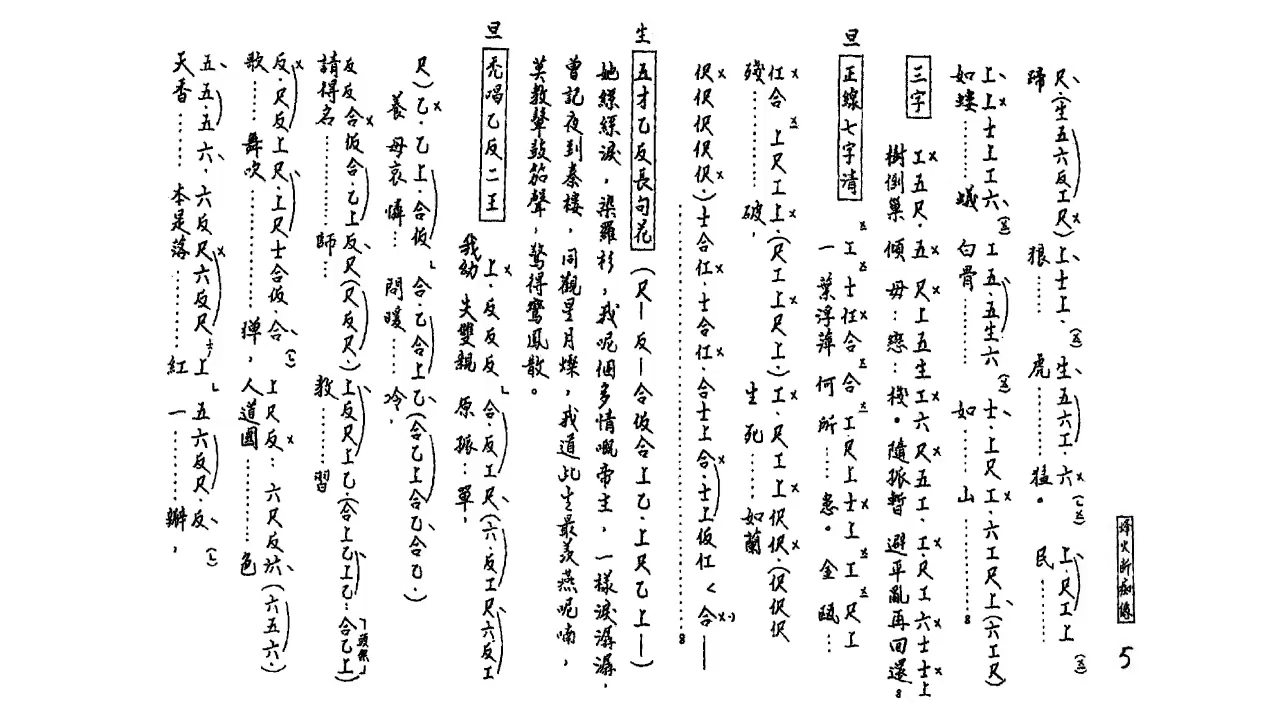 烽火斷痴緣
5
尺、(生五六反工尺)上、士上、生、五六工、六 上、尺工上
蹄 狼…… 虎……猛。 民……
上、上士上工六、工五、五生六 士、上尺工、六工尺上(六工尺)
如螻……蟻 白骨…… 如……山……
三字 工五尺、五 尺上五生工六尺五工、工尺工六士士上
樹倒巢 傾 毋：戀：棧。隨孤暫 避平亂再回還。
旦
正線七字清 工士仜合 合工尺上士上工尺上
一葉浮萍 何所……患。金甌…
仜合 上尺工上、(尺工上尺上、)工、尺工上伬伬、(伬伬伬
殘…… 破， 生死……如蘭
伬伬伬伬伬、)士合仜、士合仜、合士上合、士上仮仜<合——
生
五才乙反長句花 (尺—反—合仮合上乙、上尺乙上—)
她縹縹淚，染羅衫，我呢個多情嘅帝主，一樣淚潺潺，
曾記夜到秦樓，同觀星月燦，我道此生最羨燕呢喃，
莫教鼙鼓笳聲，驚得鸞鳳散。
旦
禿唱乙反二王 上、反反反 合、反工尺(六、反工尺六反工
我幼 失雙親 原孤：單，
尺)乙、乙上、合仮 合、乙合上乙、(合乙上合乙、合乙、)
養 母哀憐… 問暖……冷，
反反合仮合、乙上反、尺(尺反尺、)上反尺上乙、(合上乙上乙：合乙上)
請得名…… 師… 教……習
反、尺反上尺、上尺士合仮、合 上尺反：六尺反六、(六五六、)
歌…… 舞吹 彈，人道國……色
五、五、五六、六反尺六反尺、上 五六反尺、反、
天香…… 本是落……紅 一……瓣，